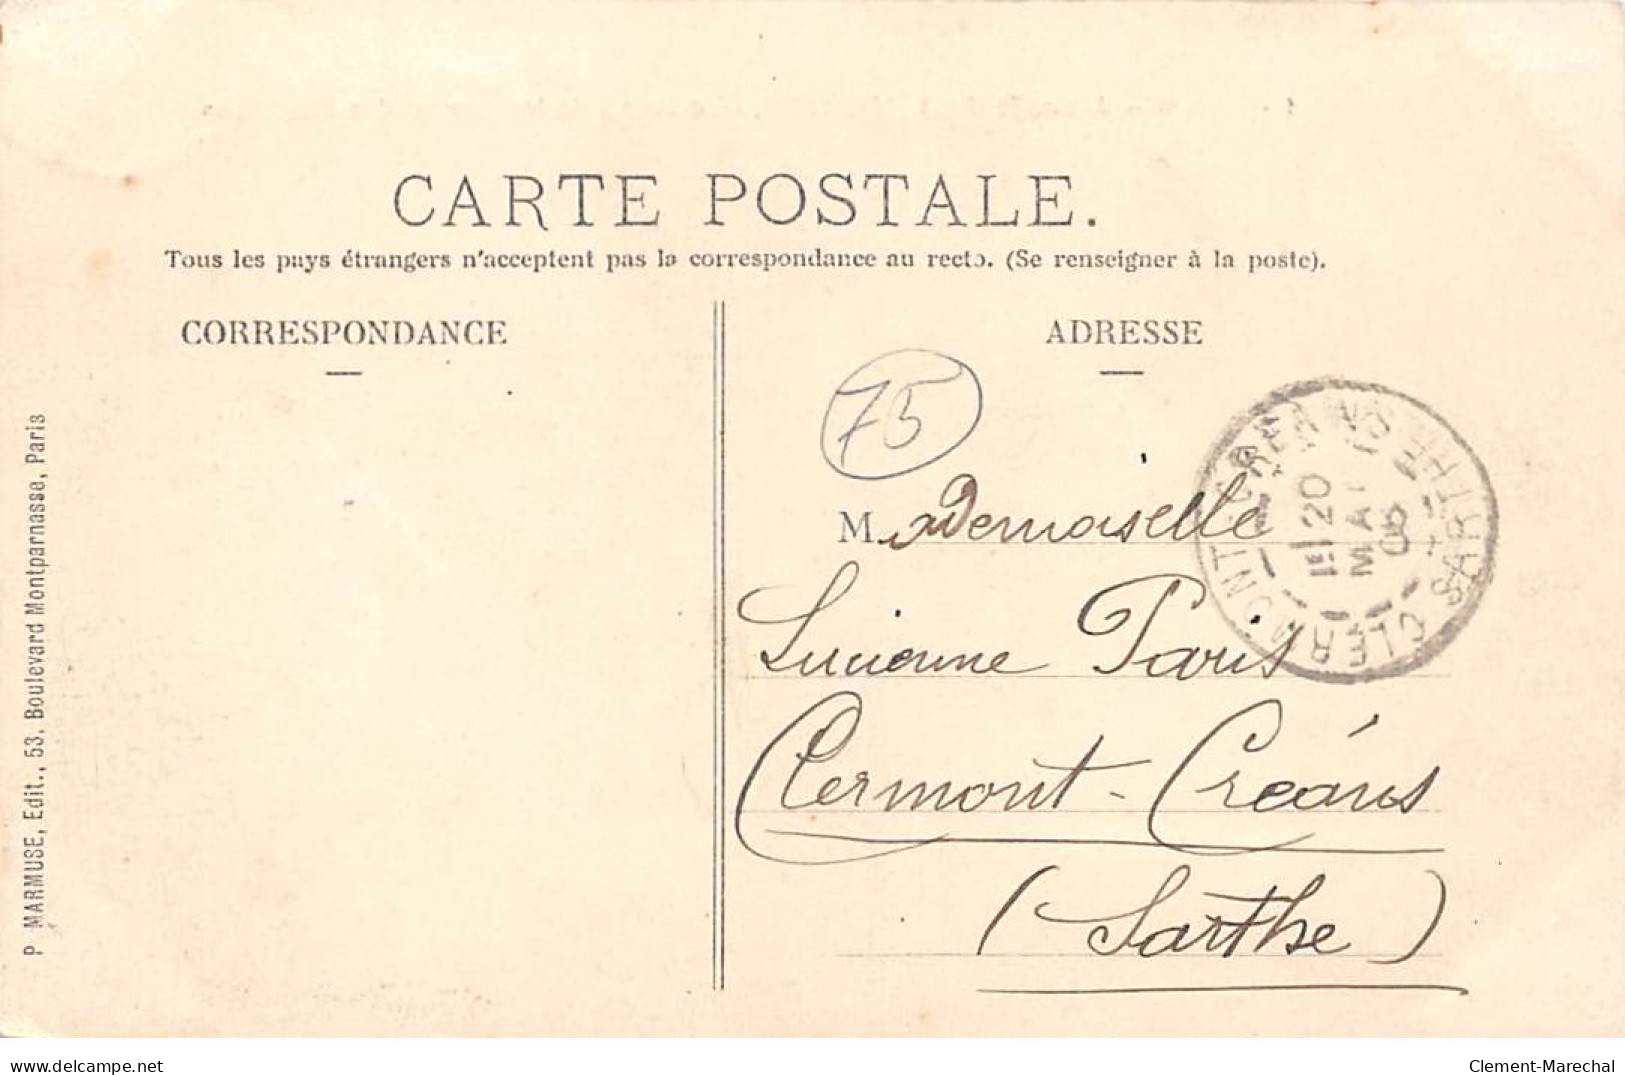 CARTE POSTALE.
Tous les pays étrangers n'acceptent pas la correspondance au recto. (Se renseigner à la poste).
CORRESPONDANCE
ADRESSE
75
Mademoiselle
Lucienne Paris
Clermont-Créans
(Sarthe)
CLERMONT-CRÉANS SARTHE
20
MAI
06
P MARMUSE, Edit., 53, Boulevard Montparnasse, Paris
delcampe.net
Clement-Marechal